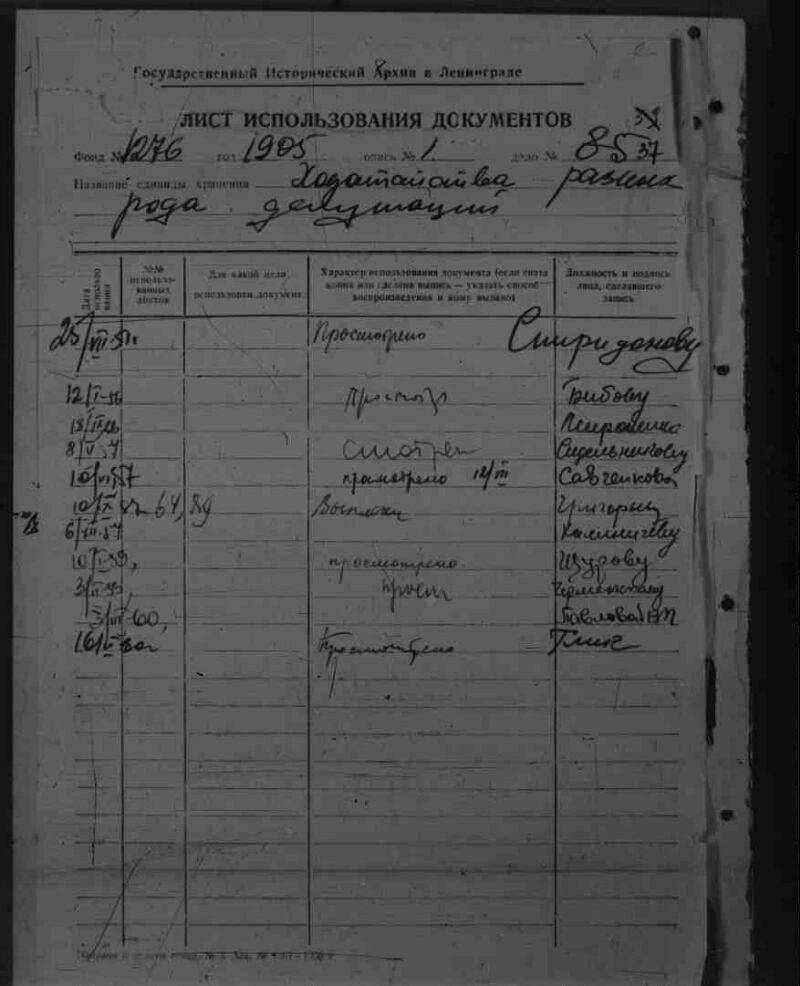 Государственный Исторический Архив в Ленинграде
ЛИСТ ИСПОЛЬЗОВАНИЯ ДОКУМЕНТОВ
Фонд № 1276 год 1905 опись № 1. дело № 85 37
Название единицы хранения Ходатайства разных
рода депутаций
Дата использования
№№ использованных листов
Для какой цели использован документ
Характер использования документа (если снята копия или сделана выпись — указать способ воспроизведения и кому выдано)
Должность и подпись лица, сделавшего запись
25/VII Просмотрено Спиридонову
12/I-56 Грибову
8/V 57 Смотрел Сидельникову
10/VI 57 просмотрено 12/III Савченкова
10/X 64, 89 Выписки Григорьян
6/XII-57 Калиничеву
10/I-59, просмотрено Щурову
3/II-59, просм
3/III-60, Павловой ВП
16/V 60г Просмотрено